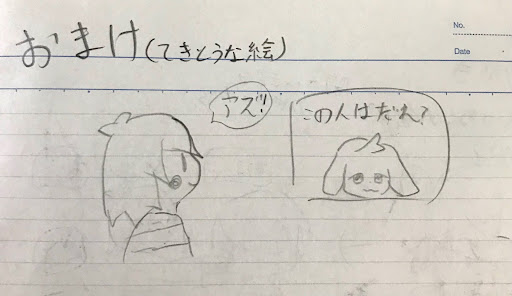 おまけ(てきとうな絵)
No.
Date
アズ!!
この人はだれ?